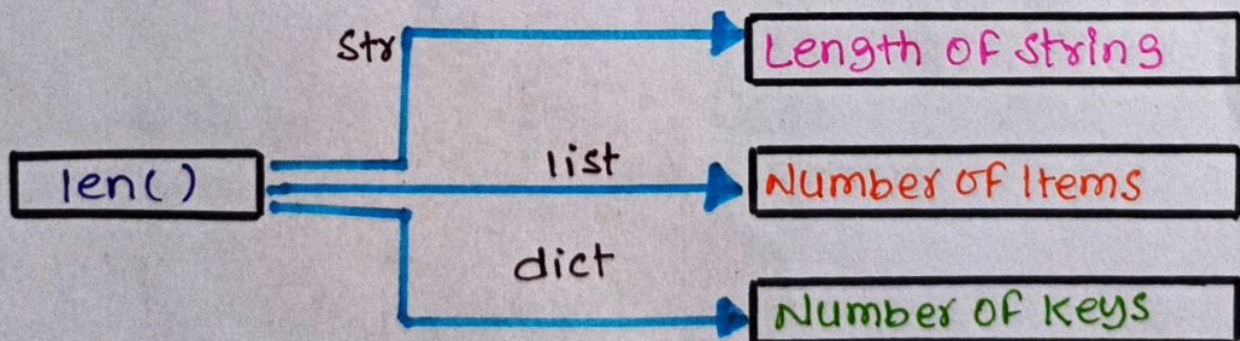 str
Length of string
len()
list
Number of Items
dict
Number of keys